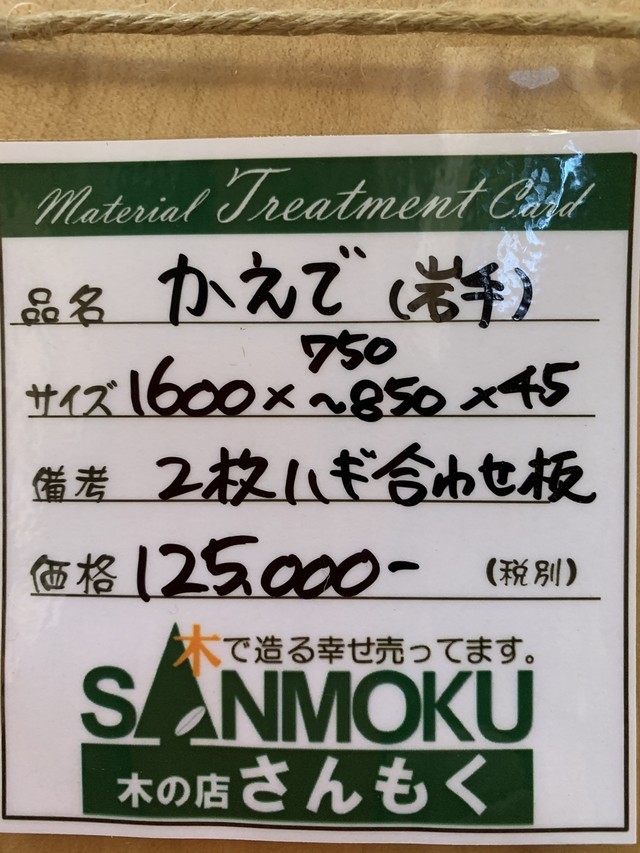 Material Treatment Card
品名 かえで (岩手)
サイズ 1600×750~850×45
備考 2枚ハギ合わせ板
価格 125,000- (税別)
木で造る幸せ売ってます。
SANMOKU
木の店さんもく